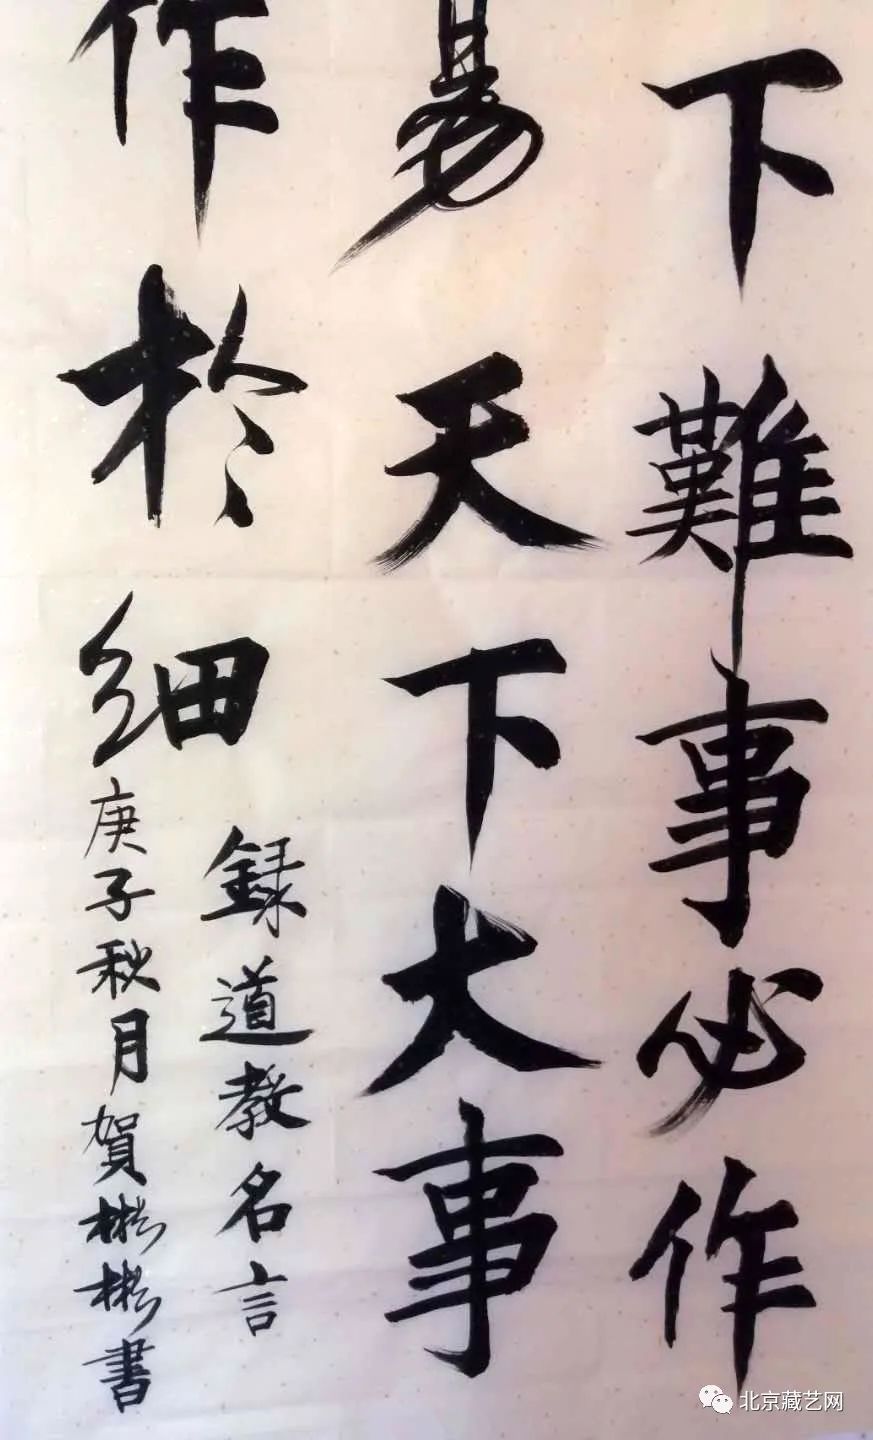 下難事必作
易天下大事
作於細
録道教名言
庚子秋月賀彬彬書
北京藏艺网